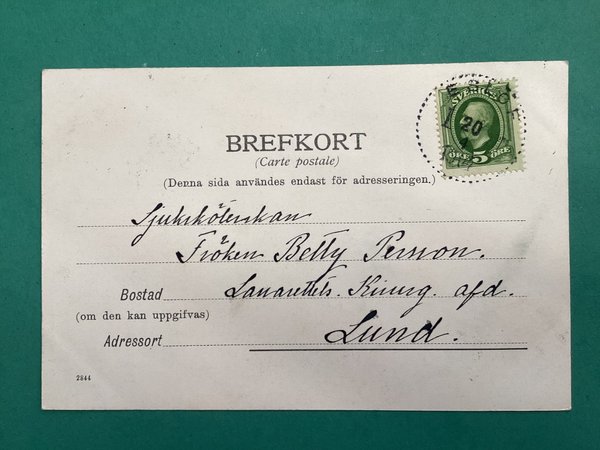 SVERIGE
20
ÖRE 5 ÖRE
BREFKORT
(Carte postale)
(Denna sida användes endast för adresseringen.)
Sjuksköterskan
Fröken Betty Persson.
Bostad Lasarettets. Kirurg. afd.
(om den kan uppgifvas)
Adressort Lund.
2844